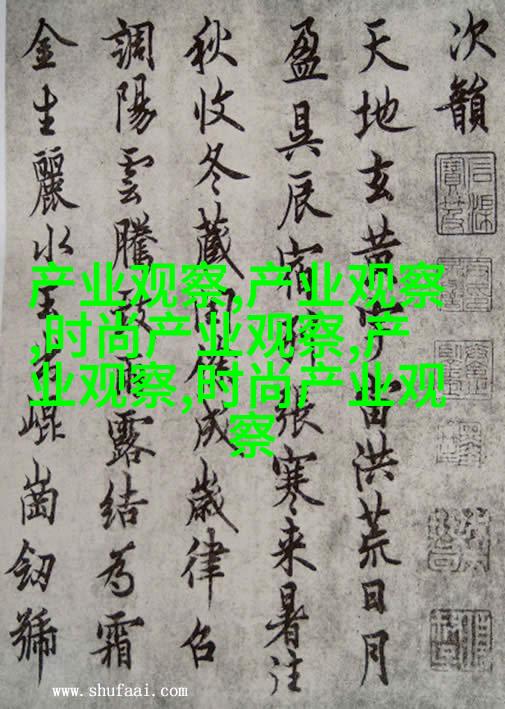 次韻
天地玄黃宇宙洪荒日月
盈昃辰宿列張寒来暑往
秋收冬藏閏餘成歲律召
調陽雲騰致雨露結為霜
金生麗水玉出崑崗劒號
产业观察,产业观察
,时尚产业观察,产
业观察,时尚产业观
察
www.shufaai.com